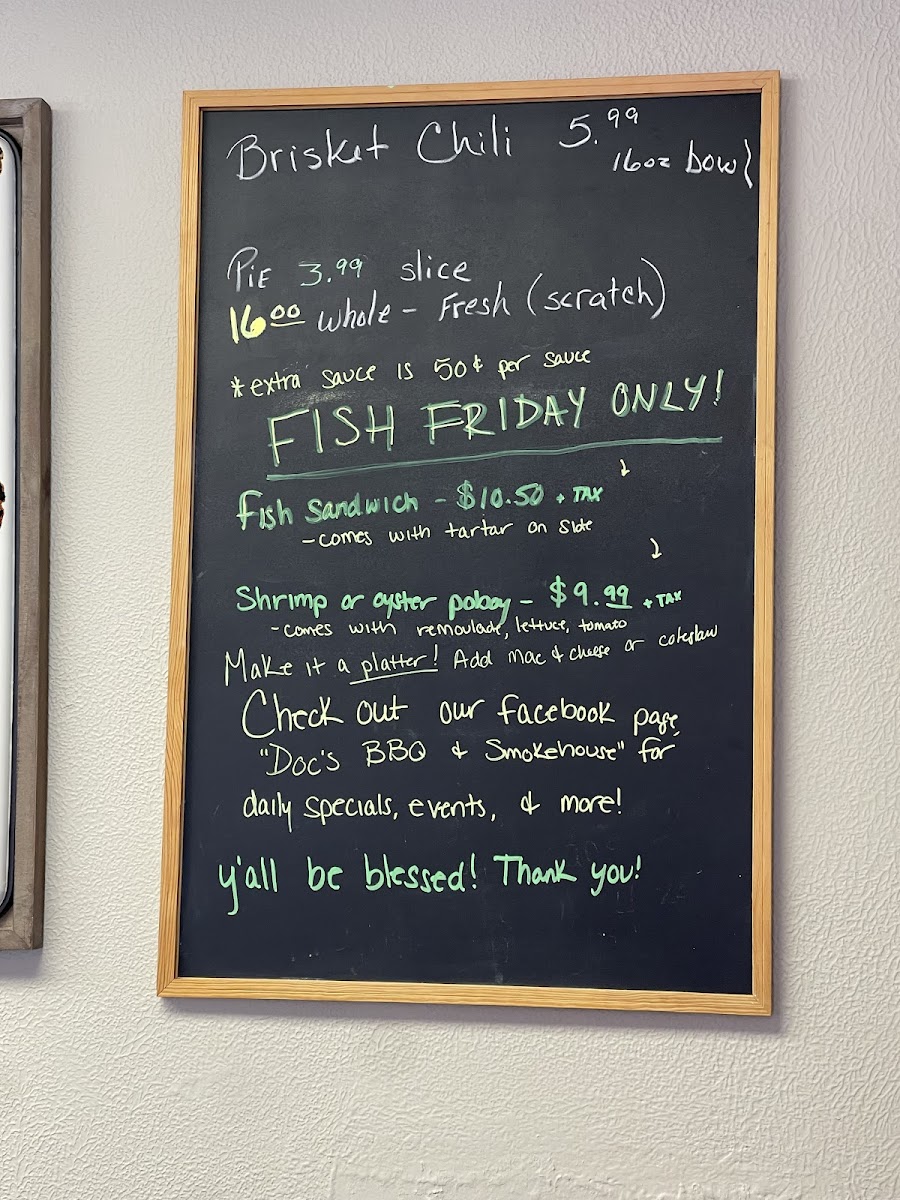 Brisket Chili 5.99
16oz bowl
PiE 3.99 slice
16.00 whole - Fresh (scratch)
*extra sauce is 50¢ per sauce
FISH FRIDAY ONLY!
Fish Sandwich - $10.50 + TAX
- comes with tartar on side
Shrimp or oyster poboy - $9.99 + TAX
- comes with remoulade, lettuce, tomato
Make it a platter! Add mac & cheese or coleslaw
Check out our facebook page
"Doc's BBQ & Smokehouse" for
daily specials, events, & more!
y'all be blessed! Thank you!